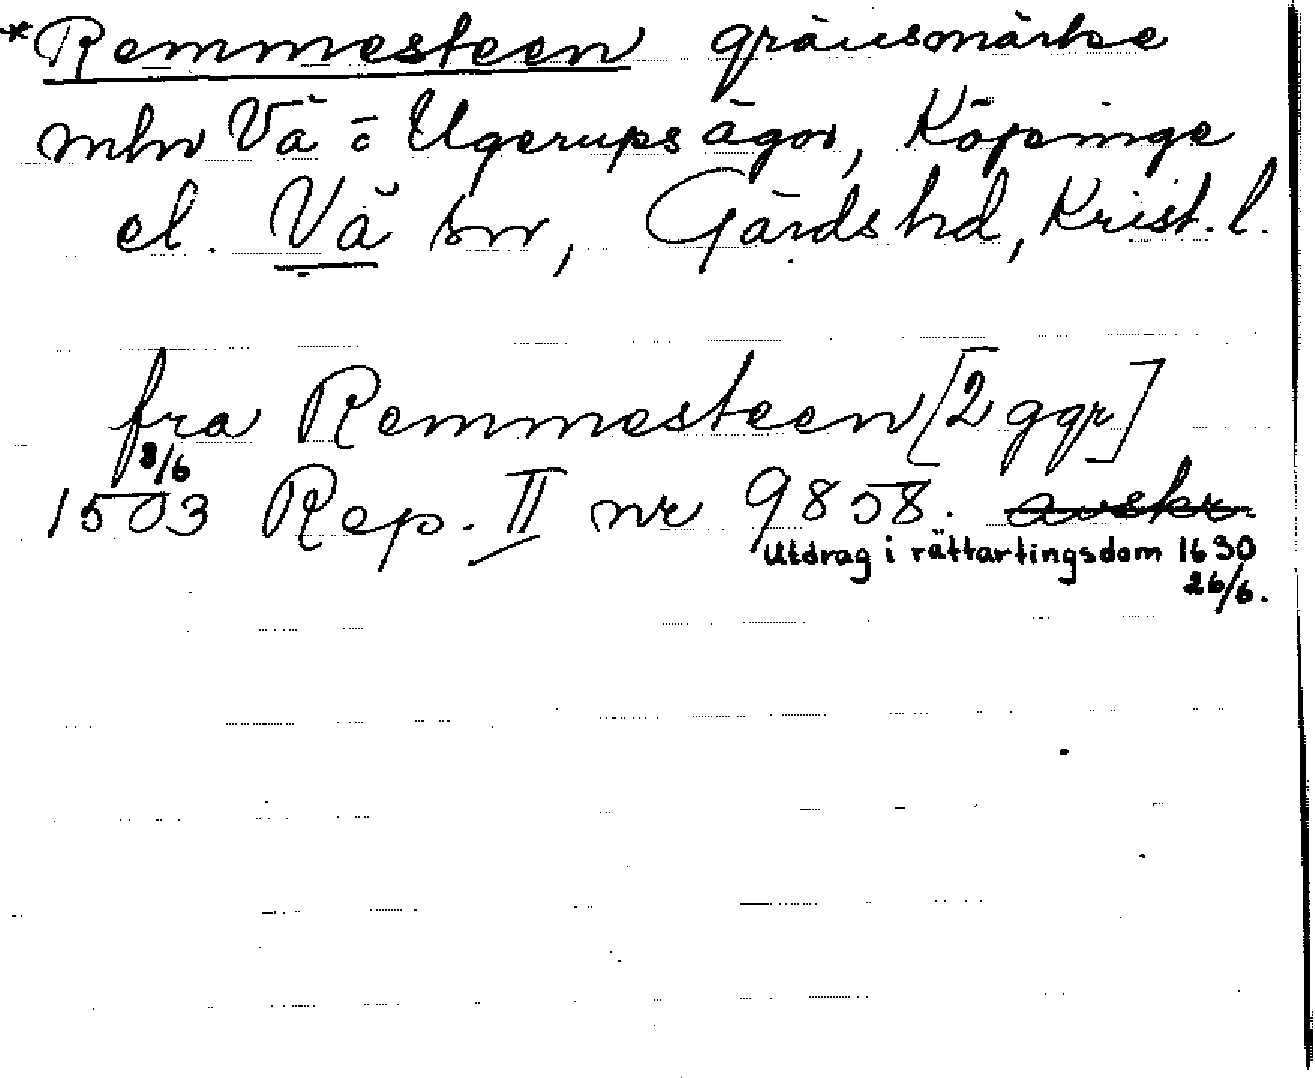 *Remmesteen gränsmärke
mln Vä o Ugerups ägor, Köpinge
el. Vä sn, Gärds hd, Krist. l.
fra Remmesteen [2 ggr]
8/6
1503 Rep. II nr 9858. avskr.
Utdrag i rättartingsdom 1630
26/6.